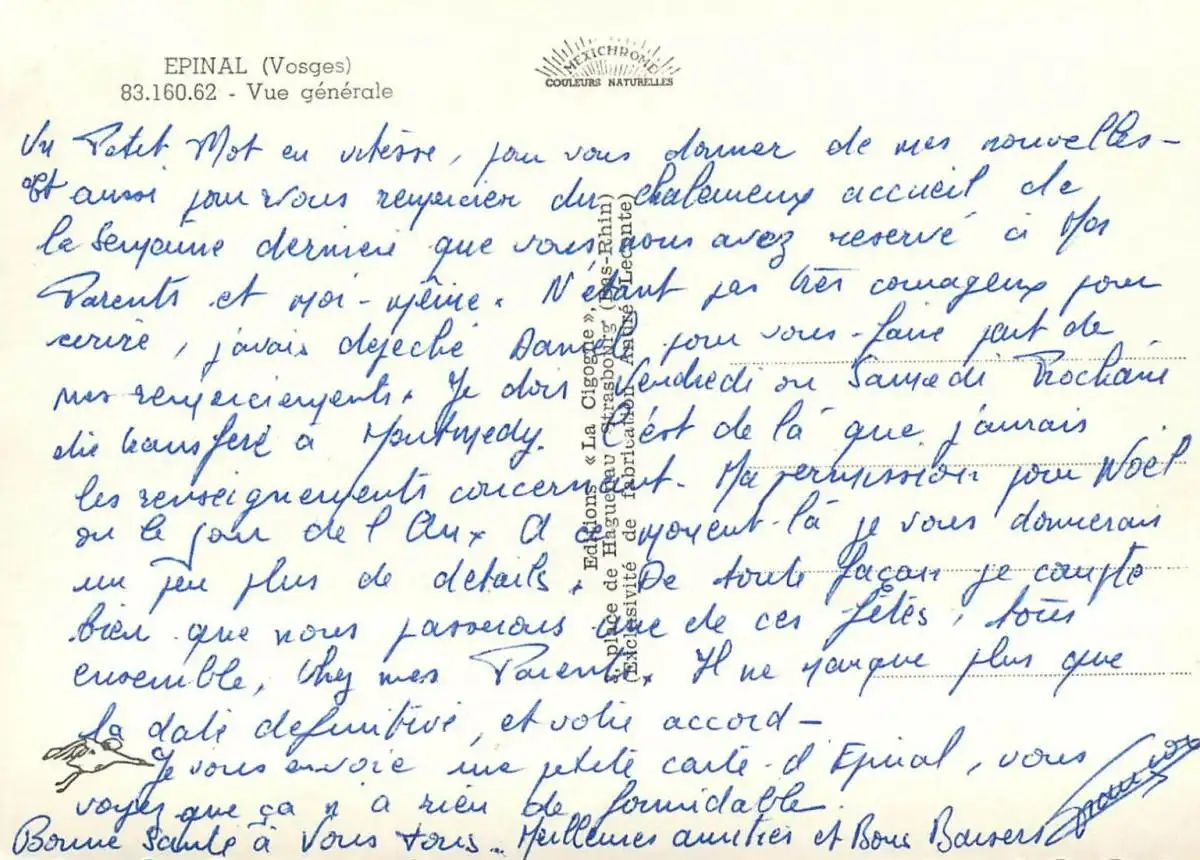 EPINAL (Vosges)
83.160.62 - Vue générale
MEXICHROME
COULEURS NATURELLES
Un Petit Mot en vitesse, pour vous donner de mes nouvelles -
Et aussi pour vous remercier du chaleureux accueil de
la Semaine dernière que vous nous avez reservé à Mes
Parents et moi-même. N'étant pas très courageux pour
ecrire, j'avais dépeché pour vous-faire part de
mes remerciements. Je dois Vendredi ou Samedi Prochain
être transferé à Montmedy. C'est de là que j'aurais
les renseignements concernant. Ma permission pour Noël
ou le jour de l'An. A ce moment-là je vous donnerais
un peu plus de détails. De toute façon je compte
bien que nous passerons une de ces fêtes, tous
ensemble, Chez mes Parents. Il ne manque plus que
la date definitive, et votre accord -
Je vous envoie une petite carte d'Epinal, vous
voyez que ça n'a rien de formidable.
Bonne Santé à Vous tous.. Meilleures amitiés et Bons Baisers
Editions « La Cigogne »,
place de Haguenau Strasbourg (Bas-Rhin)
(Exclusivité de fabrication André Leconte)